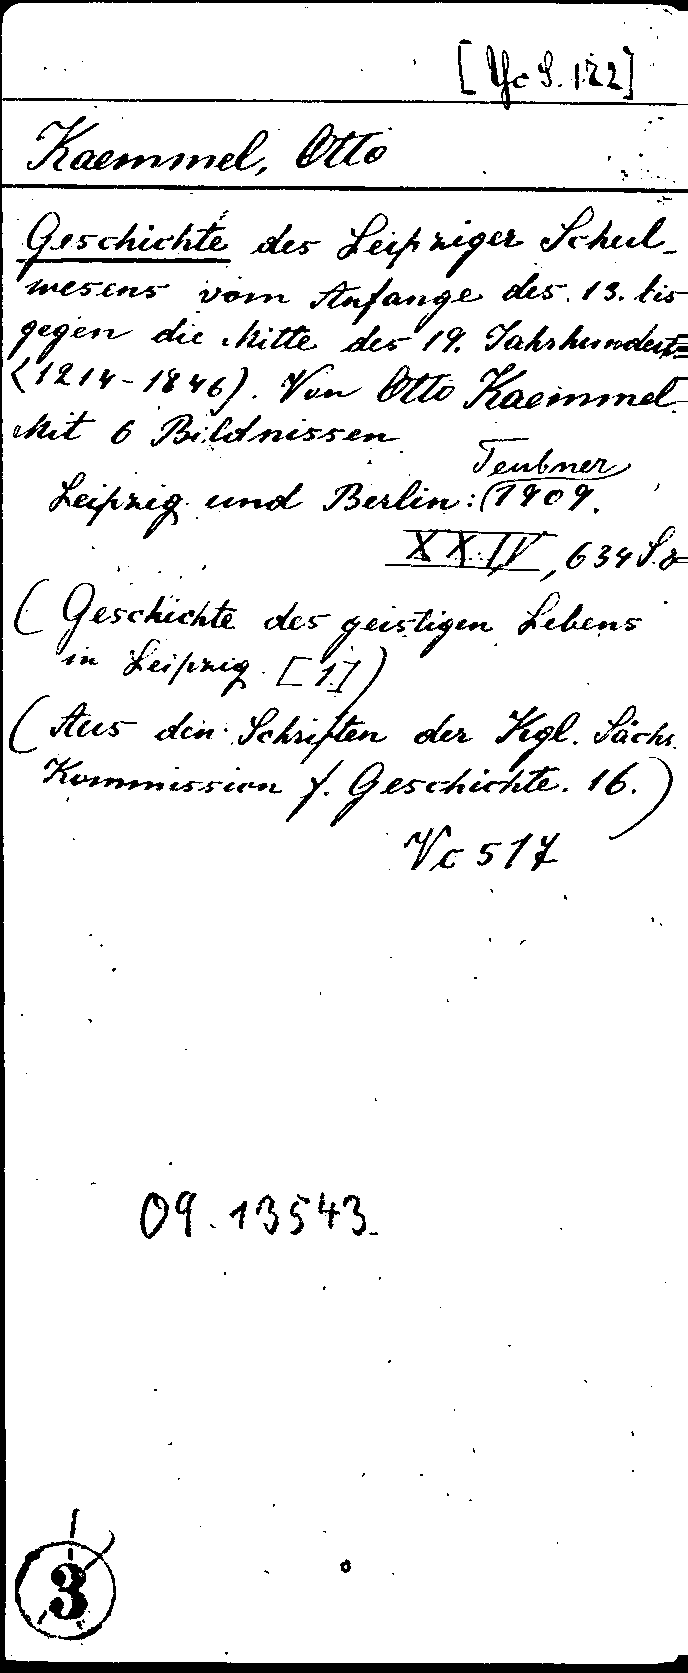 [Yc S. 122]
Kaemmel, Otto
Geschichte des Leipziger Schul-
wesens vom Anfange des 13. bis
gegen die Mitte des 19. Jahrhunderts
(1214-1846). Von Otto Kaemmel.
Mit 6 Bildnissen
Teubner
Leipzig und Berlin: 1909.
XXIV, 634 S. 8°
(Geschichte des geistigen Lebens
in Leipzig. [1])
(Aus den Schriften der Kgl. Sächs.
Kommission f. Geschichte. 16.)
Vc 517
09. 13543
3